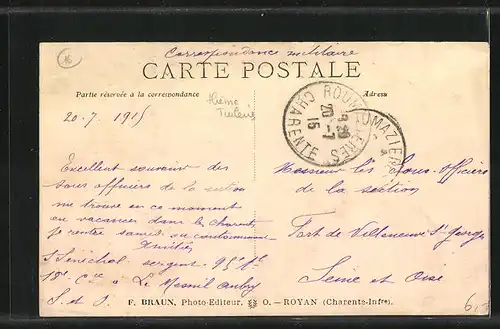 Correspondance militaire
CARTE POSTALE
Partie réservée à la correspondance
Adresse
20-7 1915
ROUMAZIERES
CHARENTE
20-7
15
Excellent souvenir des
sous officiers de la section
me trouve en ce moment
en vacances dans la Charente
je rentre samedi au cantonnement
Amitiés
Sénéchal sergent 95e
18e Cie Le Mesnil Aubry
S. et O.
Messieur les Sous-Officiers
de la section
Fort de Villeneuve St Georges
Seine et Oise
F. BRAUN, Photo-Editeur, O. — ROYAN (Charente-Infre).